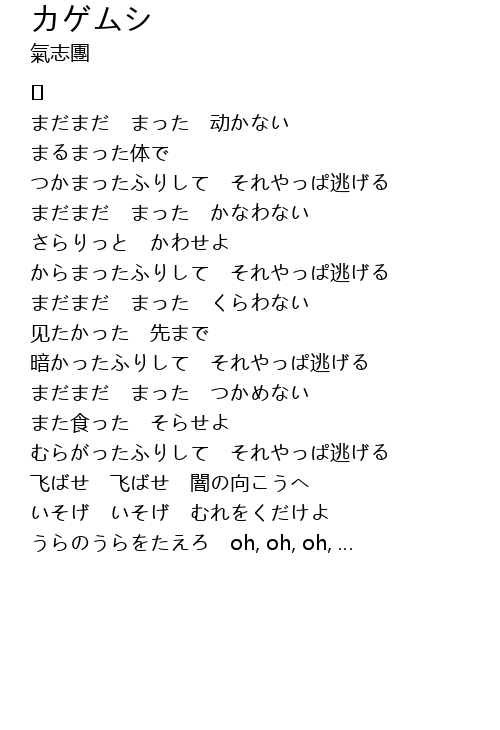 カゲムシ
氣志團
[]
まだまだ　まった　动かない
まるまった体で
つかまったふりして　それやっぱ逃げる
まだまだ　まった　かなわない
さらりっと　かわせよ
からまったふりして　それやっぱ逃げる
まだまだ　まった　くらわない
见たかった　先まで
暗かったふりして　それやっぱ逃げる
まだまだ　まった　つかめない
また食った　そらせよ
むらがったふりして　それやっぱ逃げる
飞ばせ　飞ばせ　闇の向こうへ
いそげ　いそげ　むれをくだけよ
うらのうらをたえろ　oh, oh, oh, ...